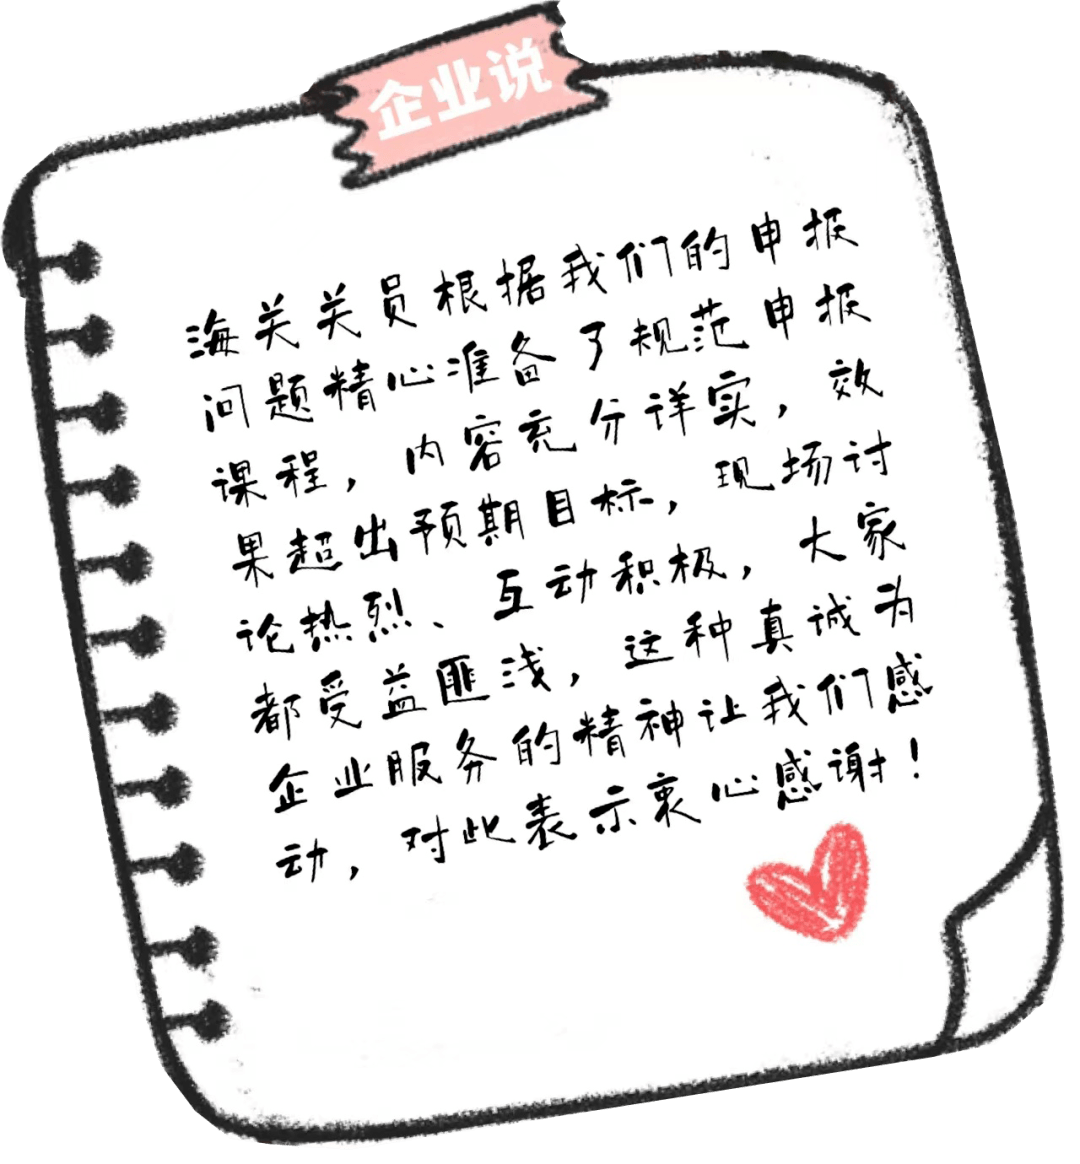 企业说
海关关员根据我们的申报
问题精心准备了规范申报
课程，内容充分详实，效
果超出预期目标，现场讨
论热烈、互动积极，大家
都受益匪浅，这种真诚为
企业服务的精神让我们感
动，对此表示衷心感谢！